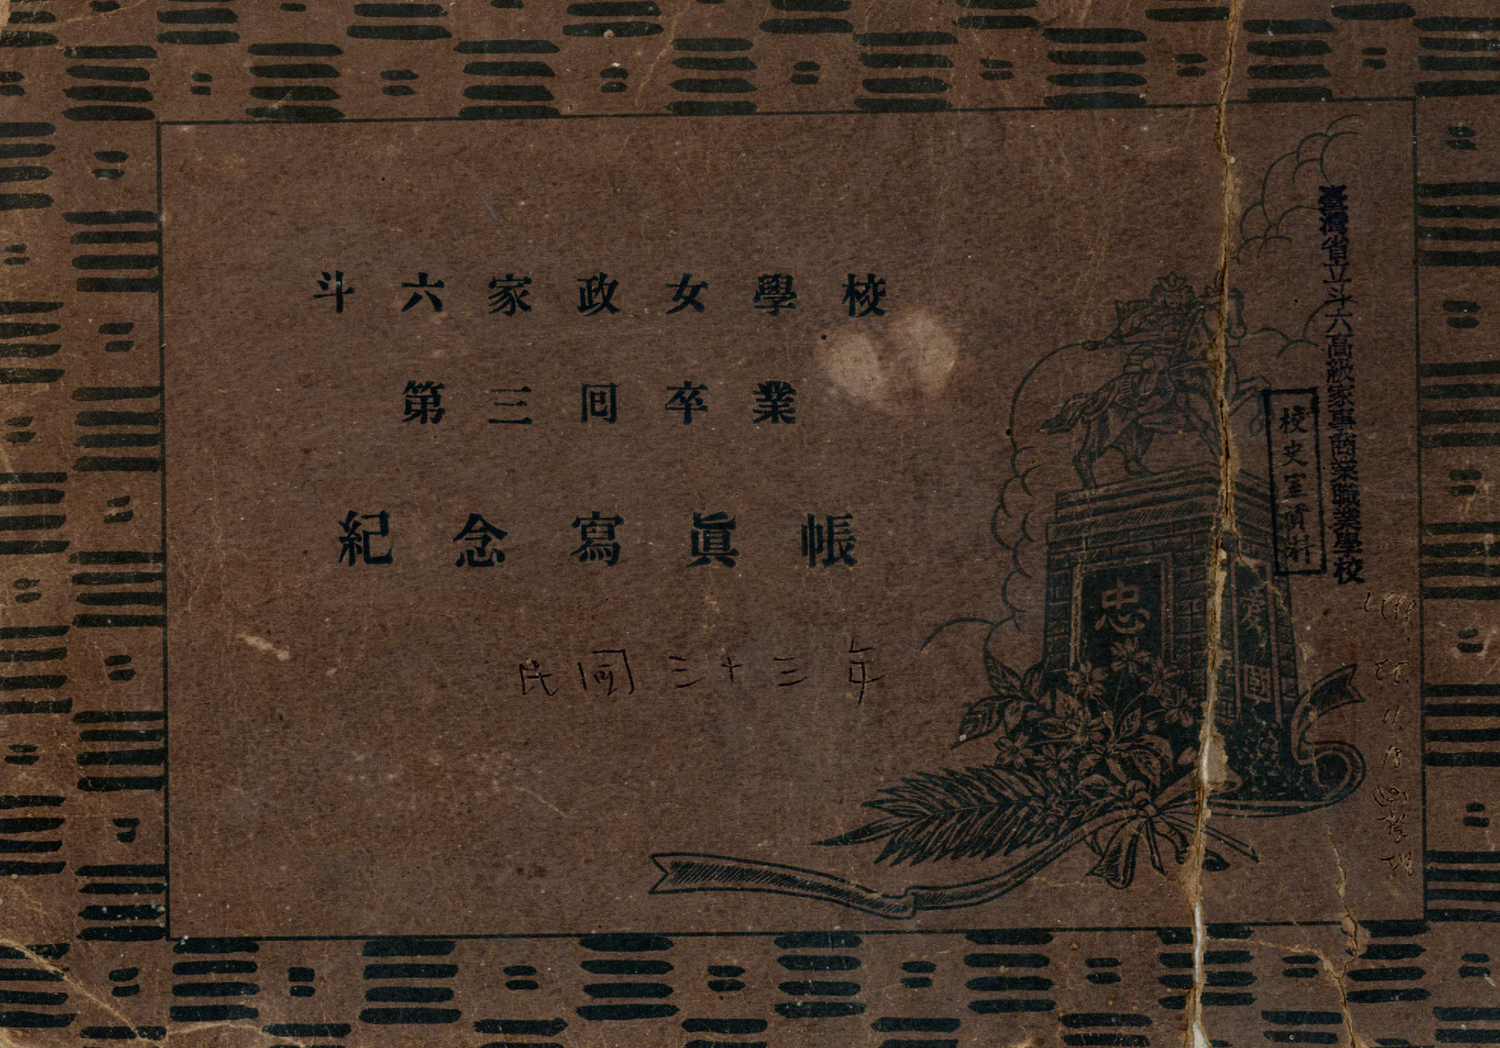 斗六家政女學校
第三回卒業
紀念寫眞帳
民国三十三年
忠
愛國
臺灣省立斗六高級家事商業職業學校
校史室資料